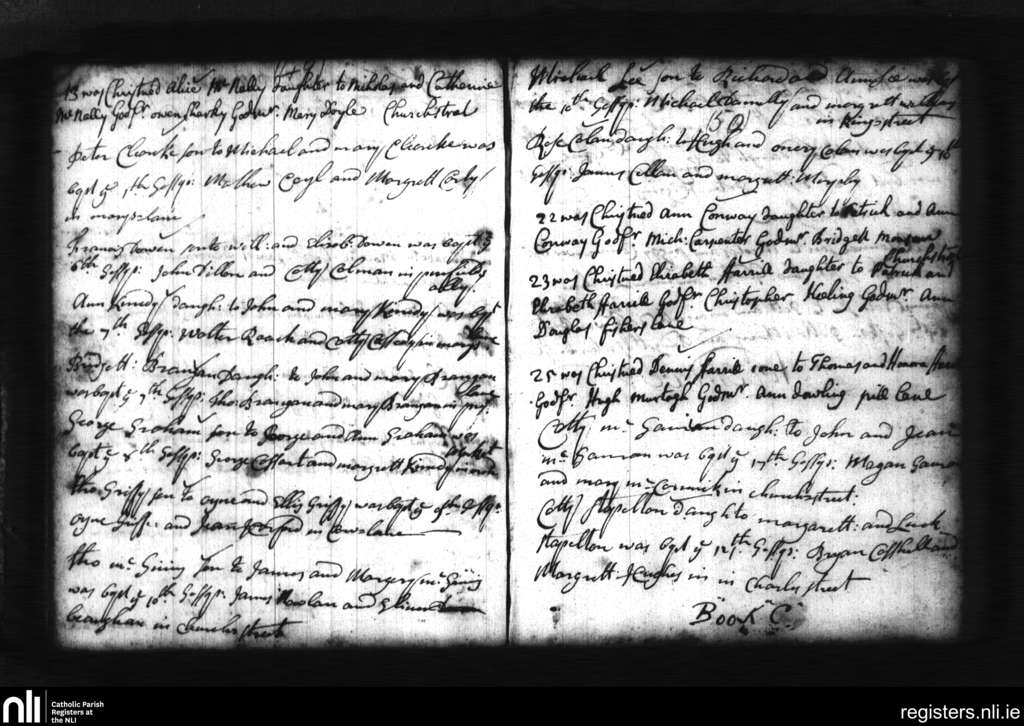 13 was Christned Alice Mc Nally Daughter to Nicholas and Catherine
Mc Nally Godfr. owen Sharky Godmr. Mary Doyle Churchstreet
Peter Clearke son to Michael and mary Clearke was
bapt ye 1th Gossps: Mathew and Margrett
in maryslane
Francis Dowen son to will: and Elisab: Dowen was bapt ye
6th Gossps: John Dillon and Catty Colman in
alley
Ann Kenedy daugh: to John and mary Kenedy was bapt
the 7th Gossps: Walter Roach and Catty in marys
lane
Bridgett: Brangan Daugh: to John and mary Brangan
was bapt ye 7th Gossps: Tho: Brangan and mary Brangan in
lane
George Graham son to George and Ann Graham was
bapt ye 7th Gossps: George and margrett Kenedy
Tho: Griffy son to and Ellis Griffy was bapt ye 9th Gossps:
and Jean in Cowslane
Tho mc Giniss son to James and Margery mc Giniss
was bapt ye 10th Gossps: James Nowlan and
in churchstreet
Michael Lee son to Richard and Ann Lee was bapt
the 10th Gossps: Michael and margrett
in Kingstreet
(50)
Rose Colan daugh: to Hugh and Colan was bapt ye 16th
Gossps: James Collan and margrett: Murphy
22 was Christned Ann Conway daughter to Patrick and Ann
Conway Godfr. Mich: Carpenter Godmr. Bridgett
Churchstreet
23 was Christned Elizabeth Farrile daughter to Patrick and
Elizabeth Farrile Godfr Christopher Keeling Godmr. Ann
Douglas fishers lane
25 was Christned Dennis Farrile sone to Thomas and Honora
Godfr. Hugh Murtogh Godmr. Ann dowling pill lane
Catty mc Gawran daugh: to John and Jean
mc Gawran was bapt ye 17th Gossps:
and mary mc Cormick in churchstreet:
Catty Stapelton daugh to margarett: and Luck
Stapelton was bapt ye 12th Gossps: Bryan and
Margrett: Hughes in in Charlesstreet
Book C.
nli
Catholic Parish
Registers at
the NLI
registers.nli.ie